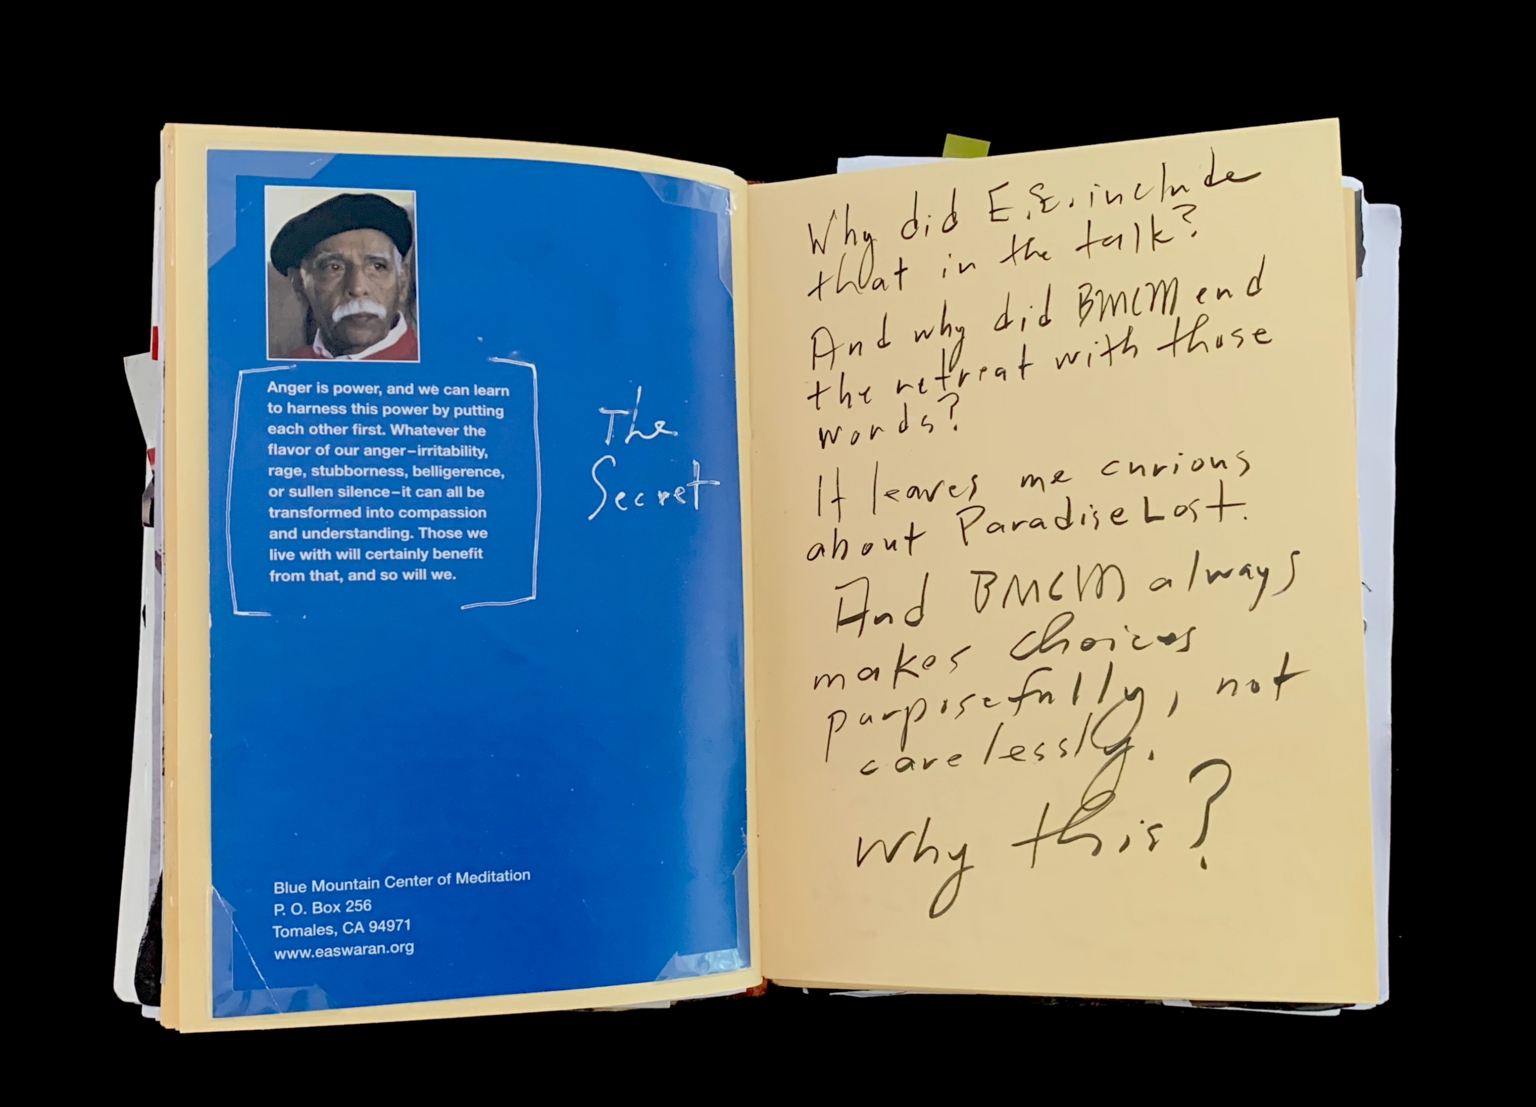 Anger is power, and we can learn
to harness this power by putting
each other first. Whatever the
flavor of our anger–irritability,
rage, stubborness, belligerence,
or sullen silence–it can all be
transformed into compassion
and understanding. Those we
live with will certainly benefit
from that, and so will we.
The
Secret
Blue Mountain Center of Meditation
P. O. Box 256
Tomales, CA 94971
www.easwaran.org
Why did E.E. include
that in the talk?
And why did BMCM end
the retreat with those
words?
It leaves me curious
about Paradise Lost.
And BMCM always
makes choices
purposefully, not
carelessly.
Why this?